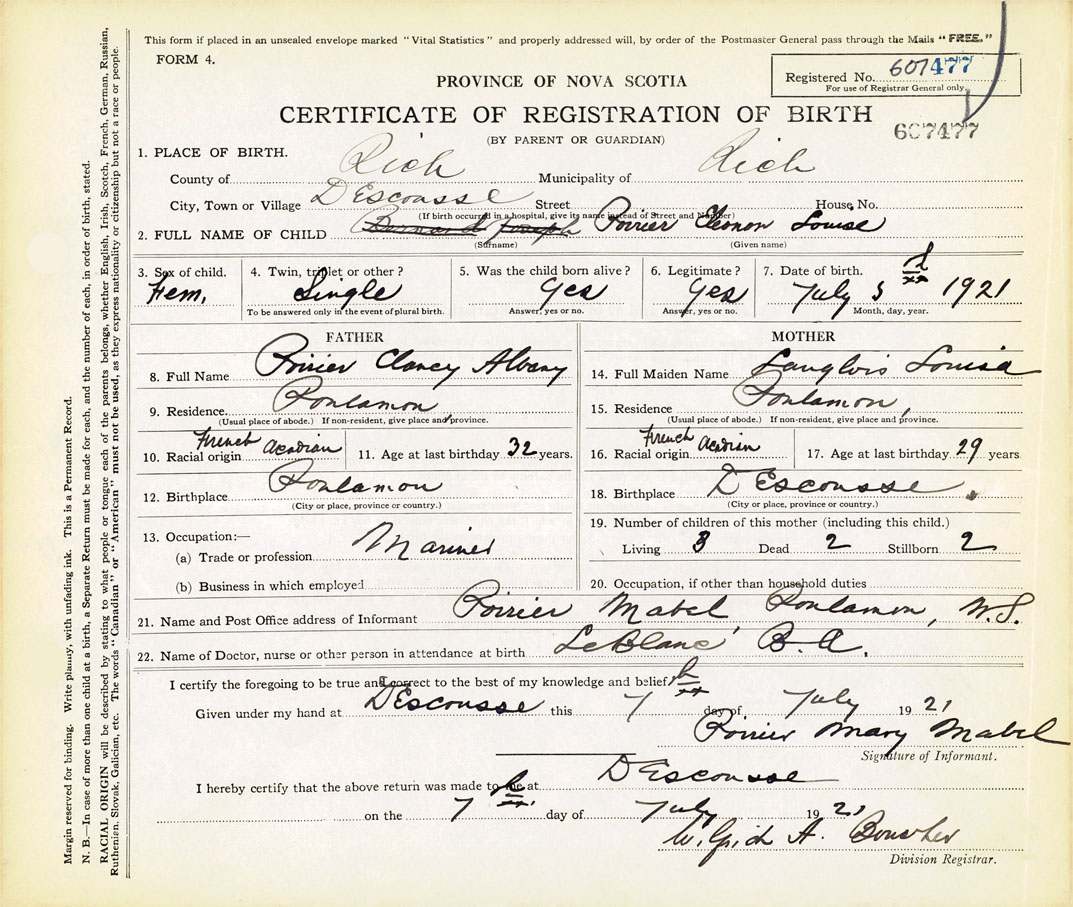 This form if placed in an unsealed envelope marked "Vital Statistics" and properly addressed will, by order of the Postmaster General pass through the Mails "FREE."
FORM 4.
Registered No. 607477
For use of Registrar General only.
PROVINCE OF NOVA SCOTIA
CERTIFICATE OF REGISTRATION OF BIRTH
607477
(BY PARENT OR GUARDIAN)
1. PLACE OF BIRTH.
County of Rich Municipality of Rich
City, Town or Village DEscousse Street House No.
(If birth occurred in a hospital, give its name instead of Street and Number)
2. FULL NAME OF CHILD Bernard Joseph Poirier Eleonor Louise
(Surname) (Given name)
3. Sex of child. 4. Twin, triplet or other? 5. Was the child born alive? 6. Legitimate? 7. Date of birth.
Fem. Single Yes Yes July 5 th 1921
To be answered only in the event of plural birth. Answer, yes or no. Answer, yes or no. Month, day, year.
FATHER
8. Full Name Poirier Clancy Albany
9. Residence. Poulamon
(Usual place of abode.) If non-resident, give place and province.
10. Racial origin French Acadian 11. Age at last birthday 32 years.
12. Birthplace Poulamon
(City or place, province or country.)
13. Occupation:—
(a) Trade or profession Mariner
(b) Business in which employed
MOTHER
14. Full Maiden Name Langlois Louisa
15. Residence Poulamon,
(Usual place of abode.) If non-resident, give place and province.
16. Racial origin French Acadian 17. Age at last birthday 29 years
18. Birthplace DEscousse.
(City or place, province or country.)
19. Number of children of this mother (including this child.)
Living 3 Dead 2 Stillborn 2
20. Occupation, if other than household duties
21. Name and Post Office address of Informant Poirier Mabel, Poulamon, N.S.
22. Name of Doctor, nurse or other person in attendance at birth. LeBlanc B. A.
I certify the foregoing to be true and correct to the best of my knowledge and belief.
Given under my hand at DEscousse this 7 th day of July 1921
Poirier Mary Mabel
Signature of Informant.
I hereby certify that the above return was made to me at DEscousse
on the 7 th. day of July 1921
A. Boucher
Division Registrar.
Margin reserved for binding. Write plainly, with unfading ink. This is a Permanent Record.
N. B.—In case of more than one child at a birth, a Separate Return must be made for each, and the number of each, in order of birth, stated.
RACIAL ORIGIN will be described by stating to what people or tongue each of the parents belongs, whether English, Irish, Scotch, French, German, Russian,
Ruthenian, Slovak, Galician, etc. The words "Canadian" or "American" must not be used, as they express nationality or citizenship but not a race or people.